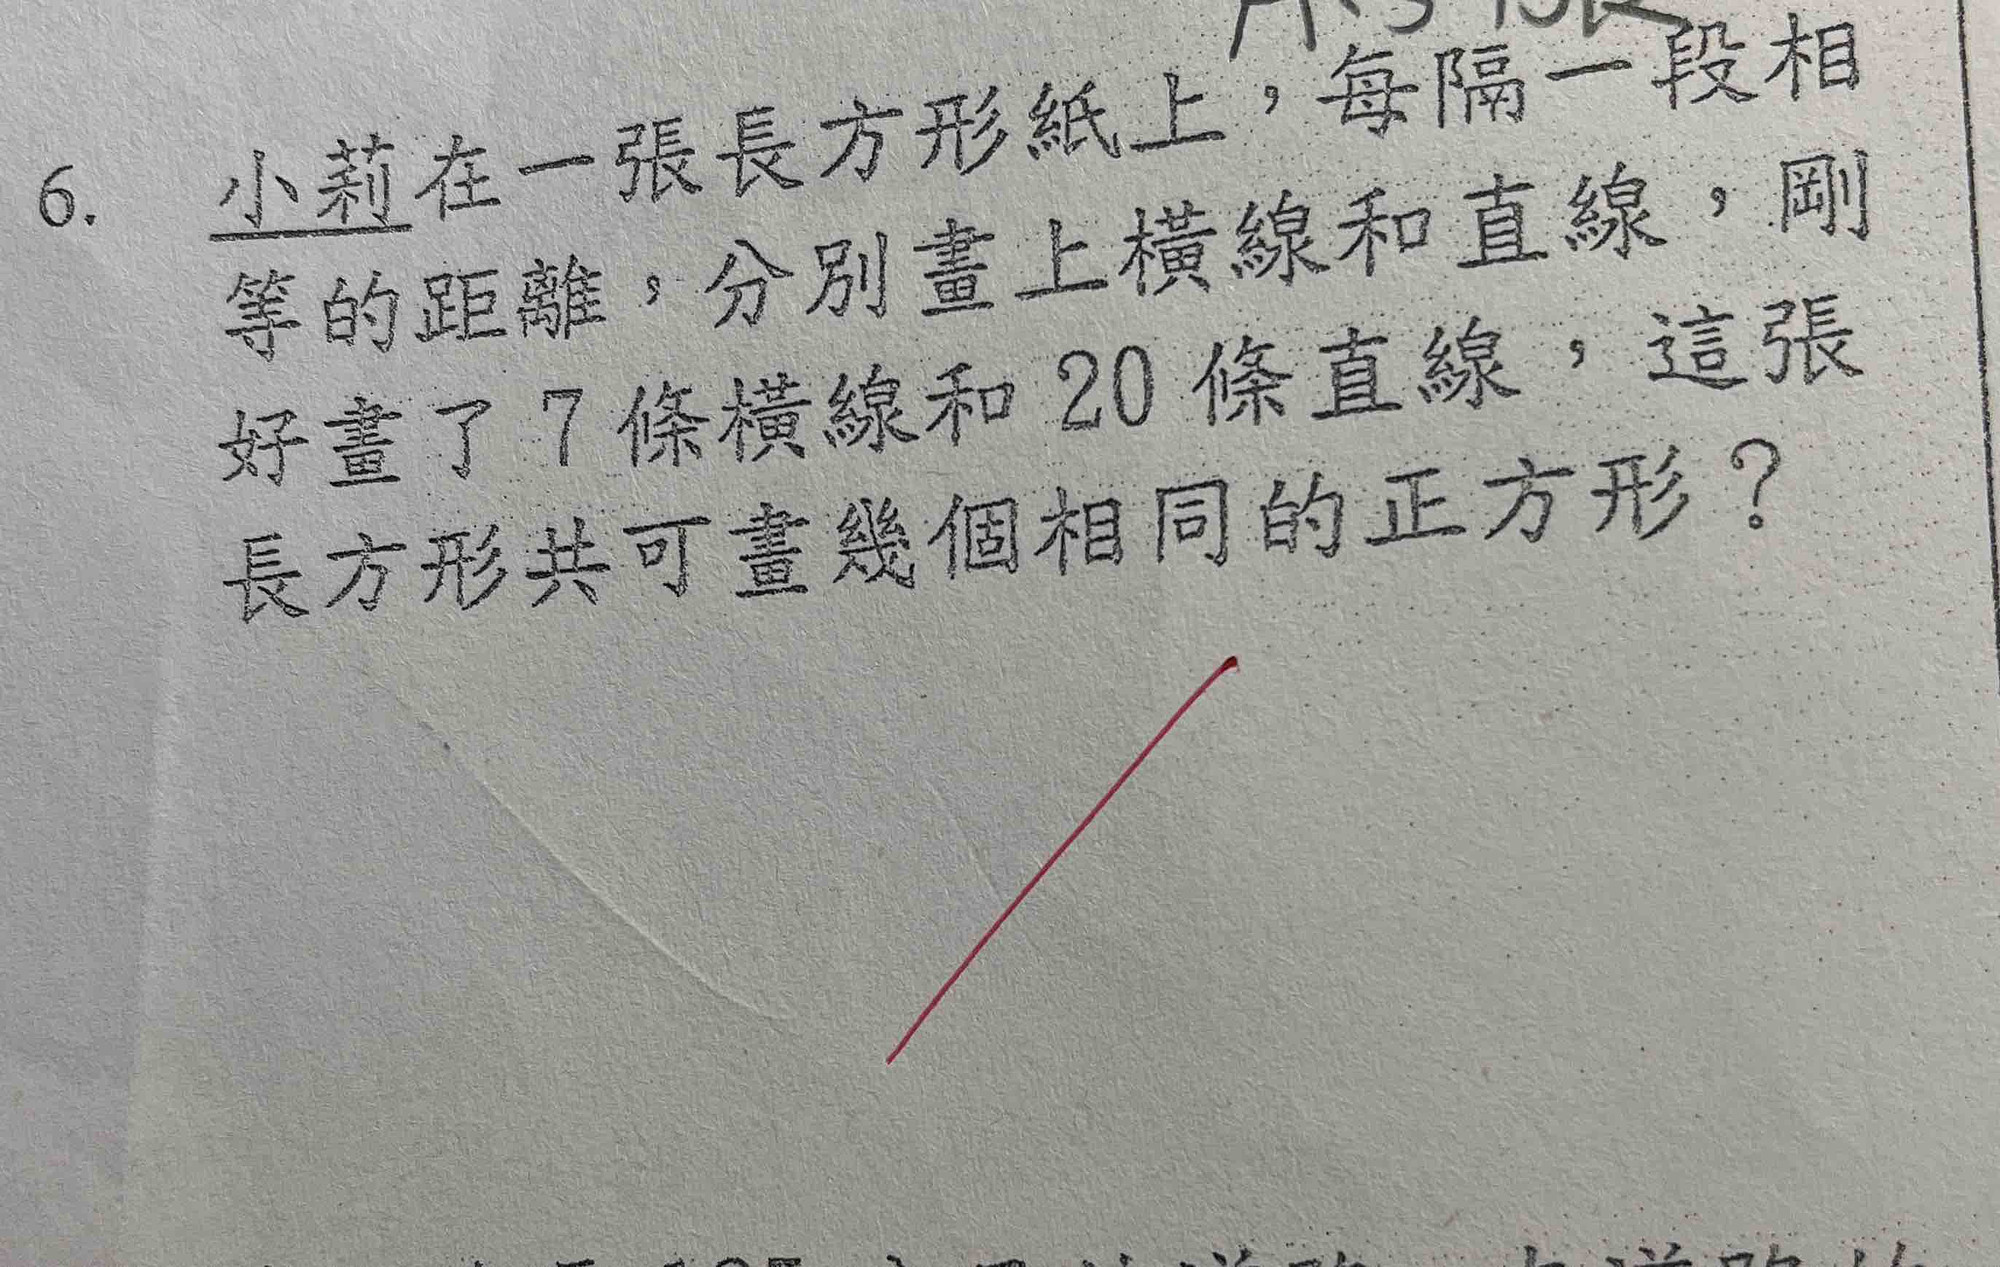 6. 小莉在一張長方形紙上，每隔一段相
等的距離，分別畫上橫線和直線，剛
好畫了 7 條橫線和 20 條直線，這張
長方形共可畫幾個相同的正方形？